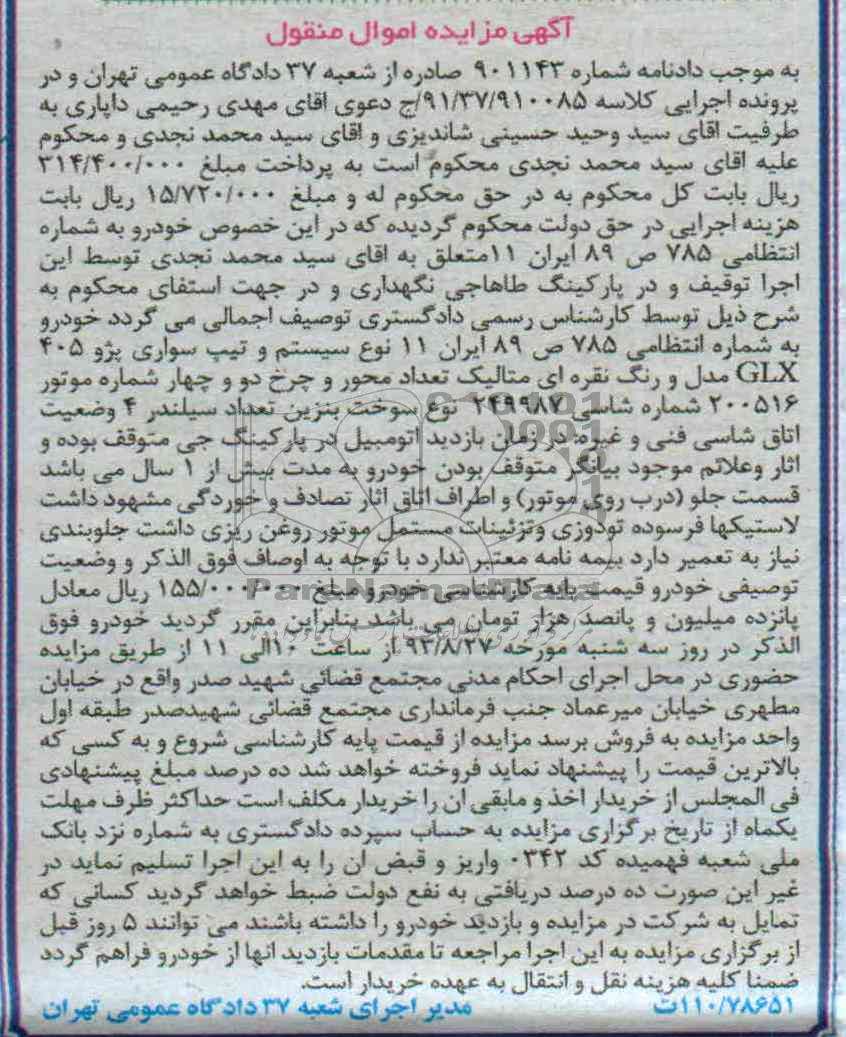 آگهی مزایده اموال منقول
به موجب دادنامه شماره ۹۰۱۱۴۳ صادره از شعبه ۳۷ دادگاه عمومی تهران و در
پرونده اجرایی کلاسه ۹۱/۳۷/۹۱۰۰۸۵/ج دعوی اقای مهدی رحیمی داپاری به
طرفیت اقای سید وحید حسینی شاندیزی و اقای سید محمد نجدی و محکوم
علیه اقای سید محمد نجدی محکوم است به پرداخت مبلغ ۳۱۴/۴۰۰/۰۰۰
ریال بابت کل محکوم به در حق محکوم له و مبلغ ۱۵/۷۲۰/۰۰۰ ریال بابت
هزینه اجرایی در حق دولت محکوم گردیده که در این خصوص خودرو به شماره
انتظامی ۷۸۵ ص ۸۹ ایران ۱۱متعلق به اقای سید محمد نجدی توسط این
اجرا توقیف و در پارکینگ طاهاجی نگهداری و در جهت استفای محکوم به
شرح ذیل توسط کارشناس رسمی دادگستری توصیف اجمالی می گردد خودرو
به شماره انتظامی ۷۸۵ ص ۸۹ ایران ۱۱ نوع سیستم و تیپ سواری پژو ۴۰۵
GLX مدل و رنگ نقره ای متالیک تعداد محور و چرخ دو و چهار شماره موتور
۲۰۰۵۱۶ شماره شاسی ۲۴۹۹۸۷ نوع سوخت بنزین تعداد سیلندر ۴ وضعیت
اتاق شاسی فنی و غیره: در زمان بازدید اتومبیل در پارکینگ جی متوقف بوده و
اثار وعلائم موجود بیانگر متوقف بودن خودرو به مدت بیش از ۱ سال می باشد
قسمت جلو (درب روی موتور) و اطراف اتاق اثار تصادف و خوردگی مشهود داشت
لاستیکها فرسوده تودوزی وتزئینات مستمل موتور روغن ریزی داشت جلوبندی
نیاز به تعمیر دارد بیمه نامه معتبر ندارد با توجه به اوصاف فوق الذکر و وضعیت
توصیفی خودرو قیمت پایه کارشناسی خودرو مبلغ ۱۵۵/۰۰۰/۰۰۰ ریال معادل
پانزده میلیون و پانصد هزار تومان می باشد بنابراین مقرر گردید خودرو فوق
الذکر در روز سه شنبه مورخه ۹۳/۸/۲۷ از ساعت ۱۰الی ۱۱ از طریق مزایده
حضوری در محل اجرای احکام مدنی مجتمع قضائی شهید صدر واقع در خیابان
مطهری خیابان میرعماد جنب فرمانداری مجتمع قضائی شهیدصدر طبقه اول
واحد مزایده به فروش برسد مزایده از قیمت پایه کارشناسی شروع و به کسی که
بالاترین قیمت را پیشنهاد نماید فروخته خواهد شد ده درصد مبلغ پیشنهادی
فی المجلس از خریدار اخذ و مابقی ان را خریدار مکلف است حداکثر ظرف مهلت
یکماه از تاریخ برگزاری مزایده به حساب سپرده دادگستری به شماره نزد بانک
ملی شعبه فهمیده کد ۰۳۴۲ واریز و قبض ان را به این اجرا تسلیم نماید در
غیر این صورت ده درصد دریافتی به نفع دولت ضبط خواهد گردید کسانی که
تمایل به شرکت در مزایده و بازدید خودرو را داشته باشند می توانند ۵ روز قبل
از برگزاری مزایده به این اجرا مراجعه تا مقدمات بازدید انها از خودرو فراهم گردد
ضمنا کلیه هزینه نقل و انتقال به عهده خریدار است.
۱۱۰/۷۸۶۵۱ت مدیر اجرای شعبه ۳۷ دادگاه عمومی تهران
ParsNamadData